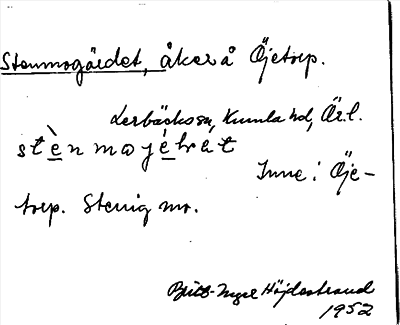 Stenmogärdet, åker å Öjetorp.
Lerbäcks sn, Kumla hd, Ör.l.
stènmojéḷret
Inne i Öje-
torp. Stenig mo.
Britt-Inger Höjdestrand
1952